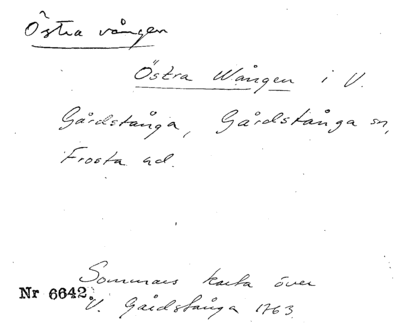 Östra vången
Östra Wången i V.
Gårdstånga, Gårdstånga sn,
Frosta hd.
Sommars karta över
Nr 6642. V. Gårdstånga 1763